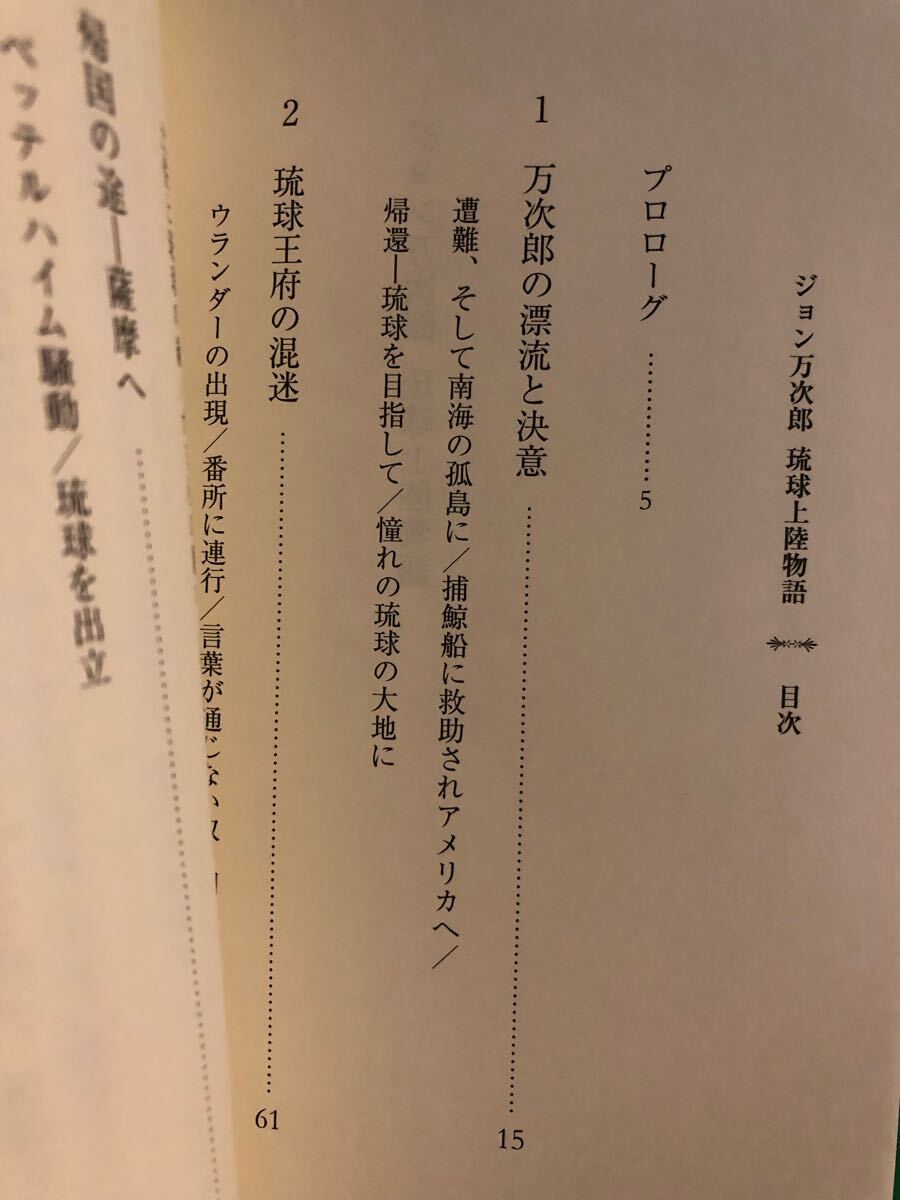 ジョン万次郎 琉球上陸物語 目次
プロローグ …………… 5
1 万次郎の漂流と決意 …………………………… 15
遭難、そして南海の孤島に/捕鯨船に救助されアメリカへ/
帰還―琉球を目指して/憧れの琉球の大地に
2 琉球王府の混迷 …………………………… 61
ウランダーの出現/番所に連行/言葉が通じない
帰国の途―薩摩へ ……………
ベッテルハイム騒動/琉球を出立